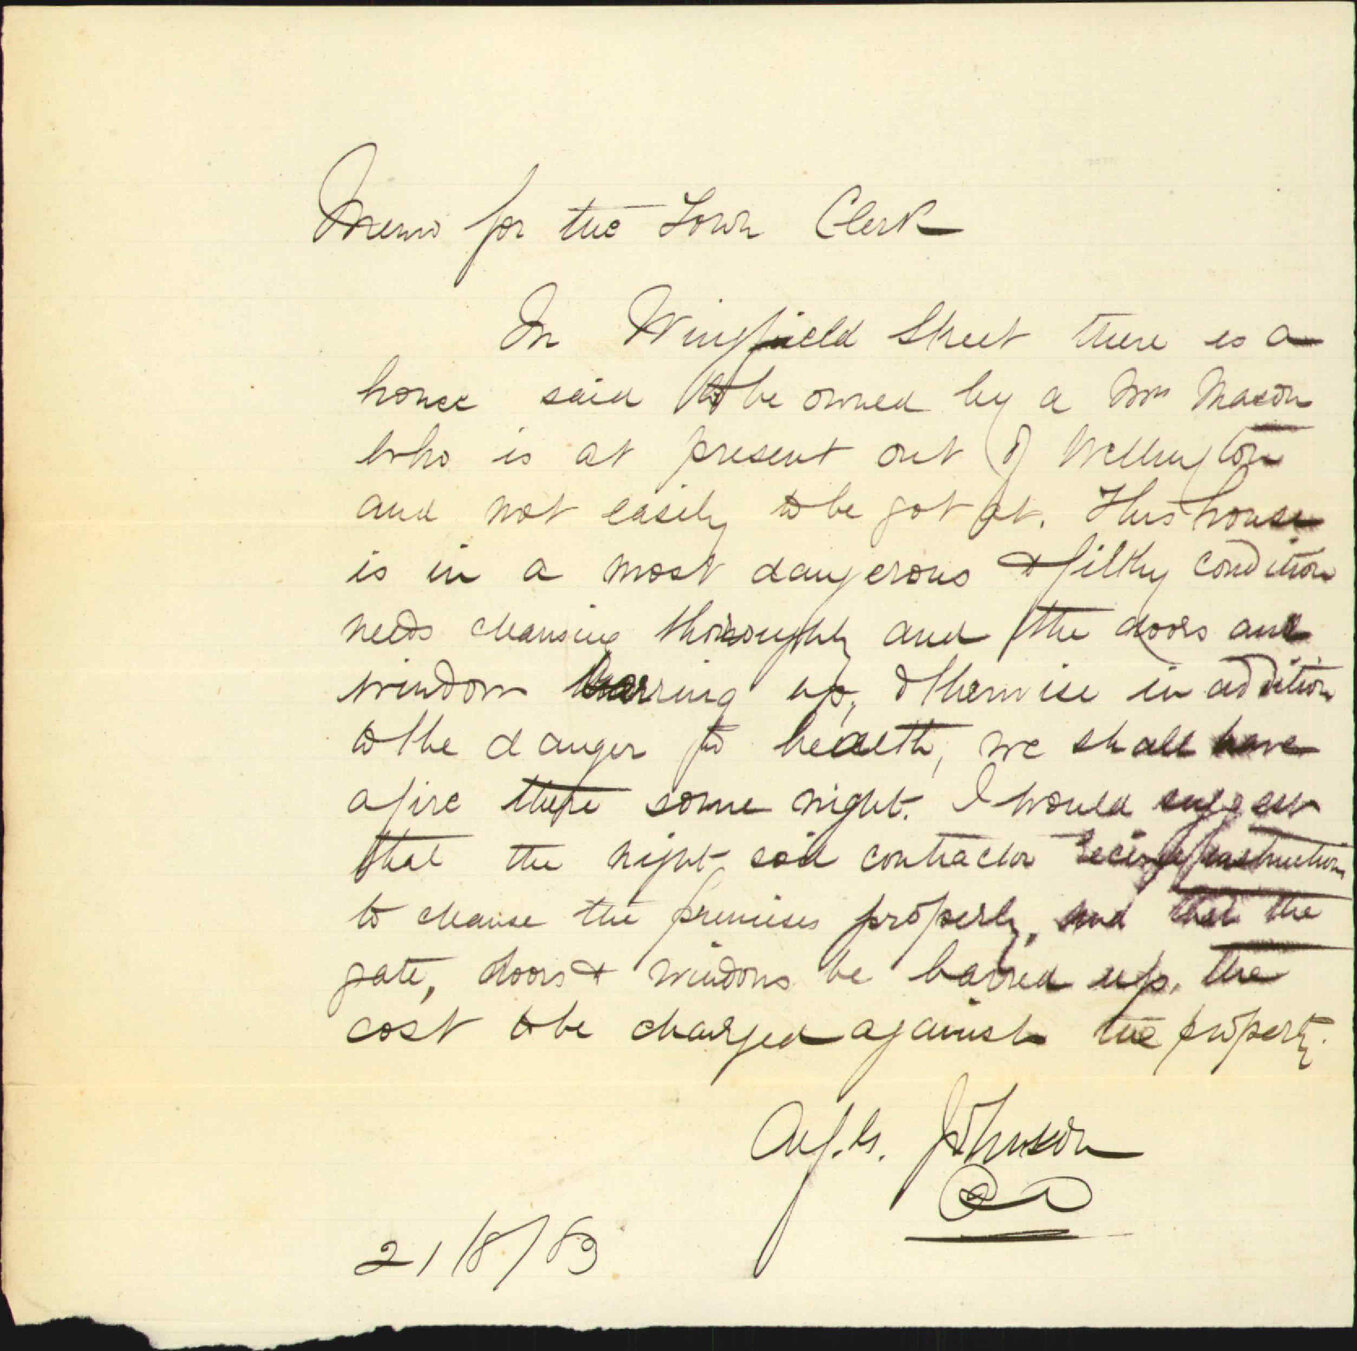 Memo for the Town Clerk
In Wingfield Street there is a
house said to be owned by a Mrs Mason
who is at present out of Wellington
and not easily to be got at. This house
is in a most dangerous & filthy condition
needs cleansing thoroughly and the doors and
window barring up, otherwise in addition
to the danger to health, we shall have
a fire there some night. I would suggest
that the night soil contractor receive instructions
to cleanse the premises properly, and that the
gate, doors & windows be barred up, the
cost to be charged against the property.
Johnson
21/8/89